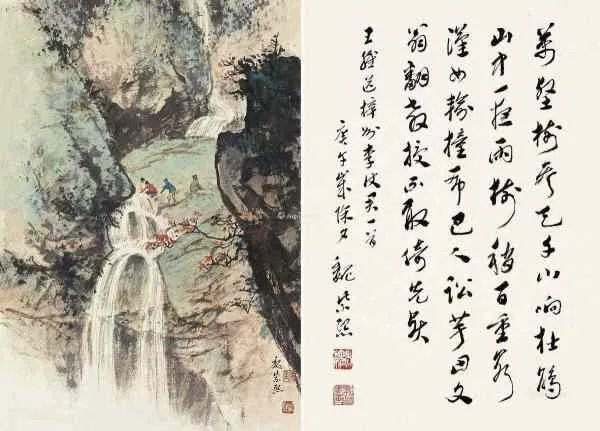 萬壑樹參天千山响杜鵑
山中一夜雨樹杪百重泉
漢女輸橦布巴人訟芋田文
翁翻教授不敢倚先賢
王維送梓州李使君一首
庚午歲除夕 魏紫熙
魏紫熙